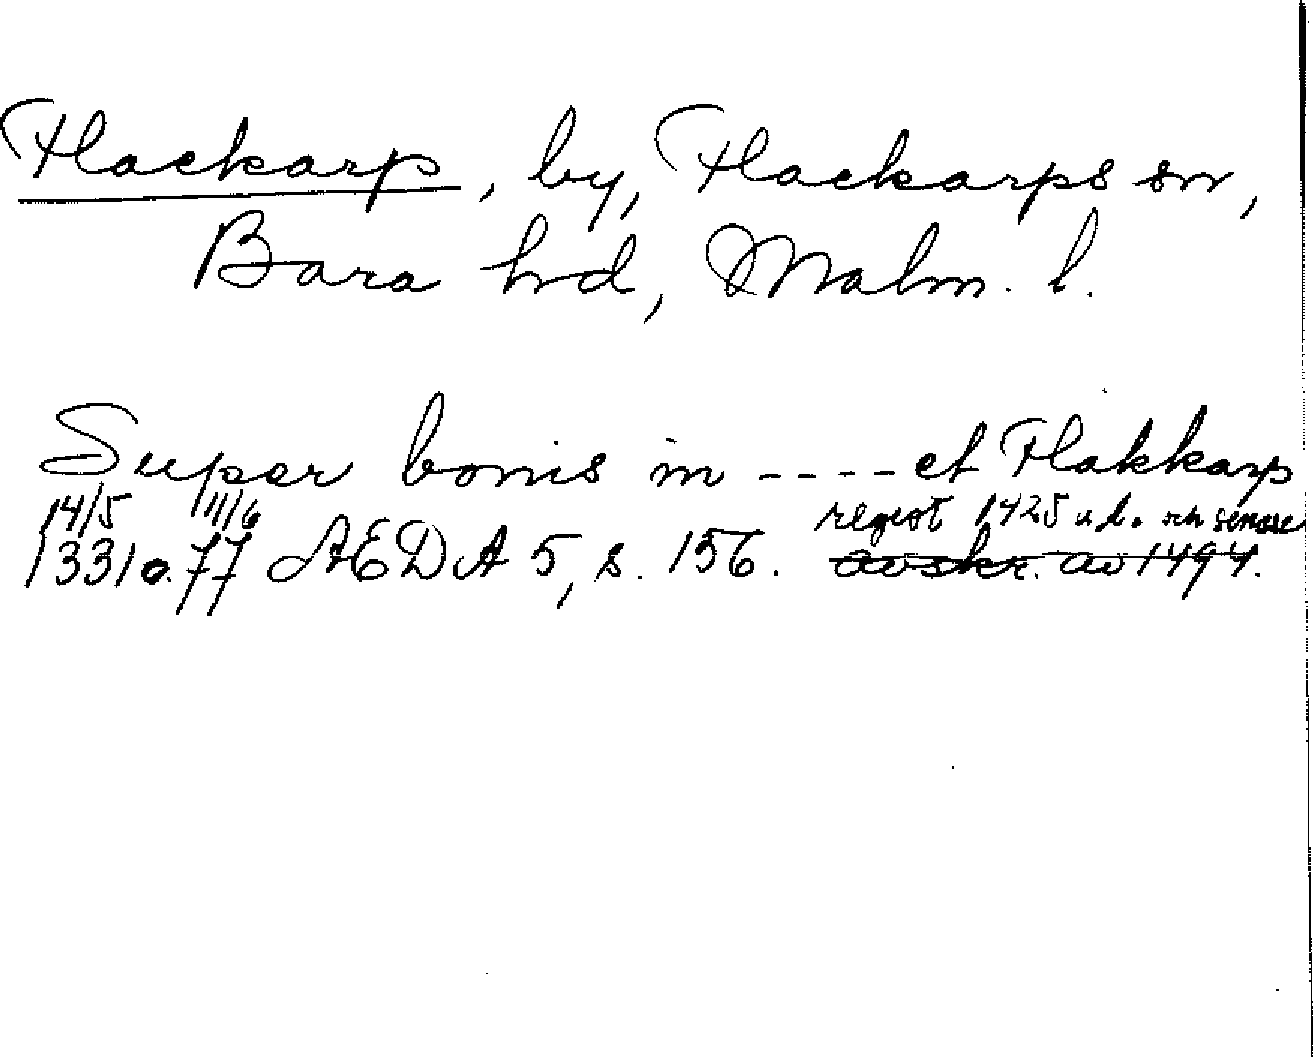 Flackarp, by, Flackarps sn,
Bara hd, Malm. l.
Super bonis in ---- et Flakkarp
14/5 11/6 regist 1425 u.d. senare
1331 o. 77 AEDA 5, s. 156. avskr. av 1494.